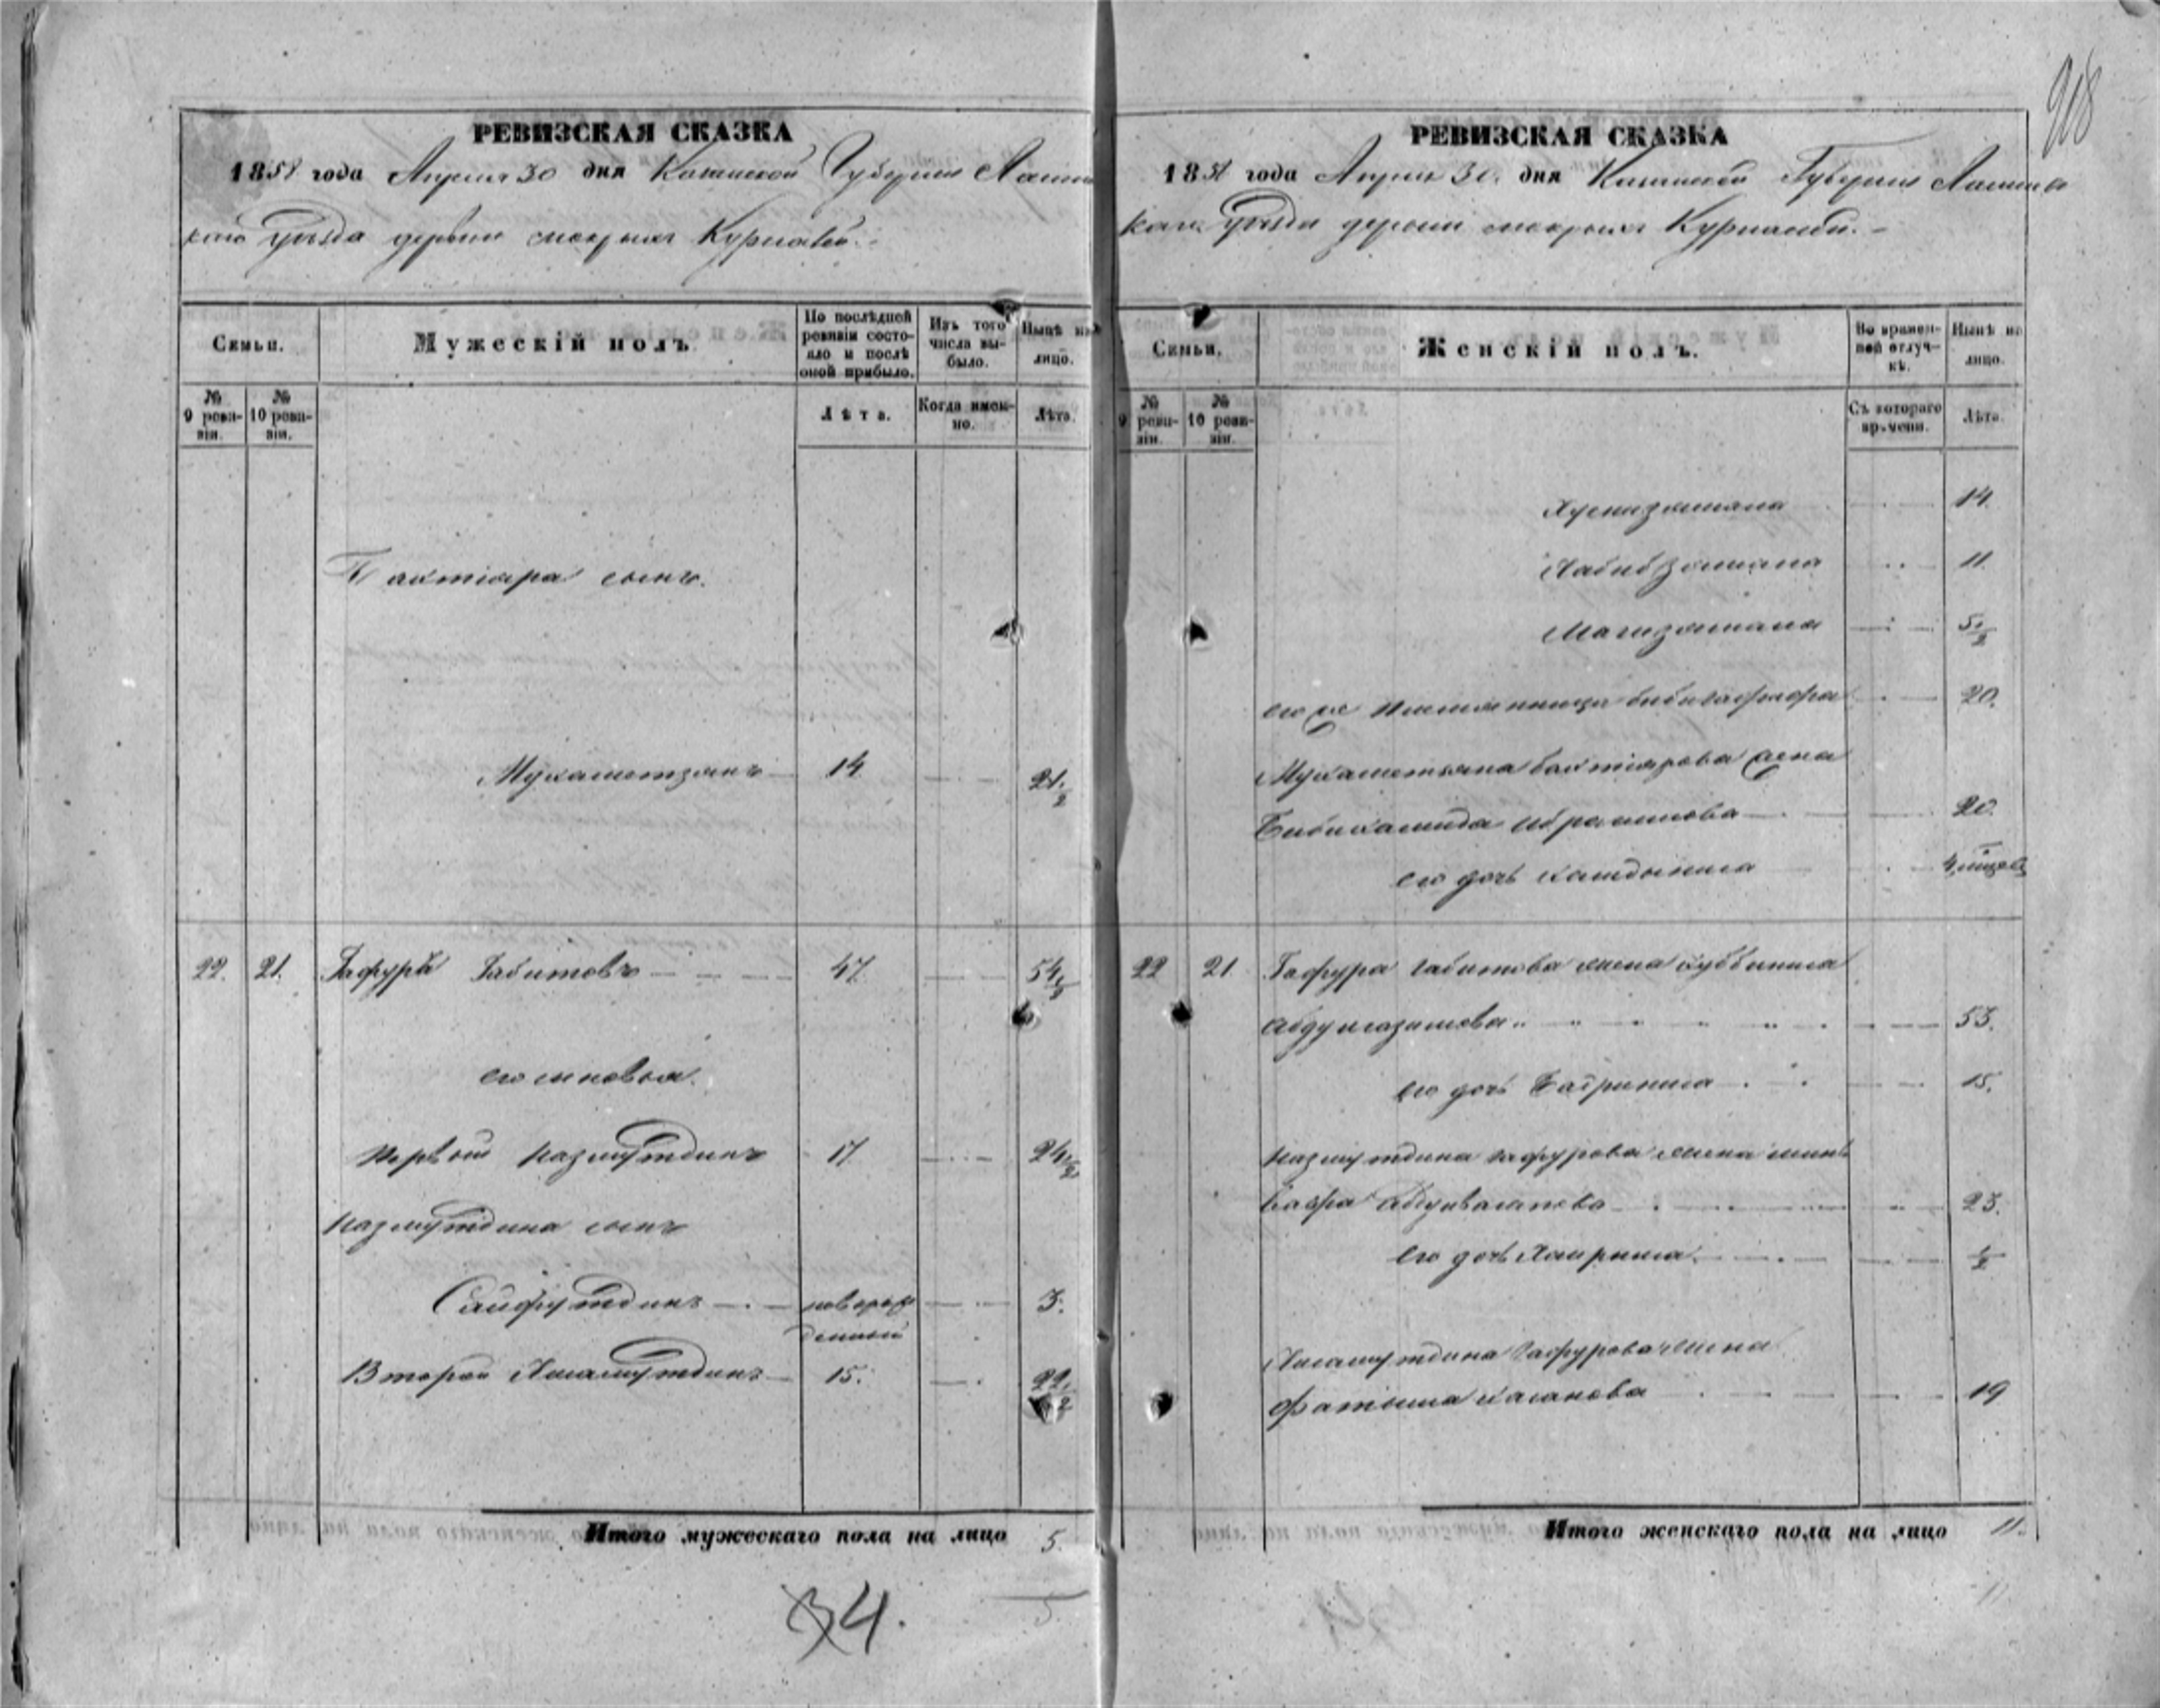 918
РЕВИЗСКАЯ СКАЗКА
1858 года Апреля 30 дня Казанской Губернии Лаише
каго Уезда деревни мокрыхъ Курналей
Семьи.
Мужескій полъ.
По послѣдней ревизіи состояло и послѣ оной прибыло.
Изъ того числа выбыло.
Нынѣ на лицо.
№ 9 ревизіи.
№ 10 ревизіи.
Лѣта.
Когда именно.
Лѣта.
Бактіяра сынъ.
Мухаметзянъ 14 21 1/2
22. 21. Гафуръ Габитовъ 47 54 1/2
его сыновья.
первый Назмутдинъ 17 24 1/2
Назмутдина сынъ
Сайфутдинъ новорож 3.
денный
Второй 15. 22 1/2
Итого мужескаго пола на лицо 5.
5
34.
РЕВИЗСКАЯ СКАЗКА
1858 года Апреля 30 дня Казанской Губернии Лаише
каго Уезда деревни мокрыхъ Курналей
Семьи.
Женскій полъ.
Во временной отлучкѣ.
Нынѣ на лицо.
№ 9 ревизіи.
№ 10 ревизіи.
Съ котораго времени.
Лѣта.
Хуснизямала 14.
Хабибзямала 11.
Магизямала 5 1/2
его же племянница 20.
Мухаметзяна бактіярова жена
Бибихамида Ибрагимова 20.
его дочь 4 месяц
22 21 Гафура габитова жена
53.
его дочь Бадриниса 15.
Назмутдина гафурова жена
23.
его дочь 1/2
гафурова жена
Фатыма 19
Итого женскаго пола на лицо 11.
11